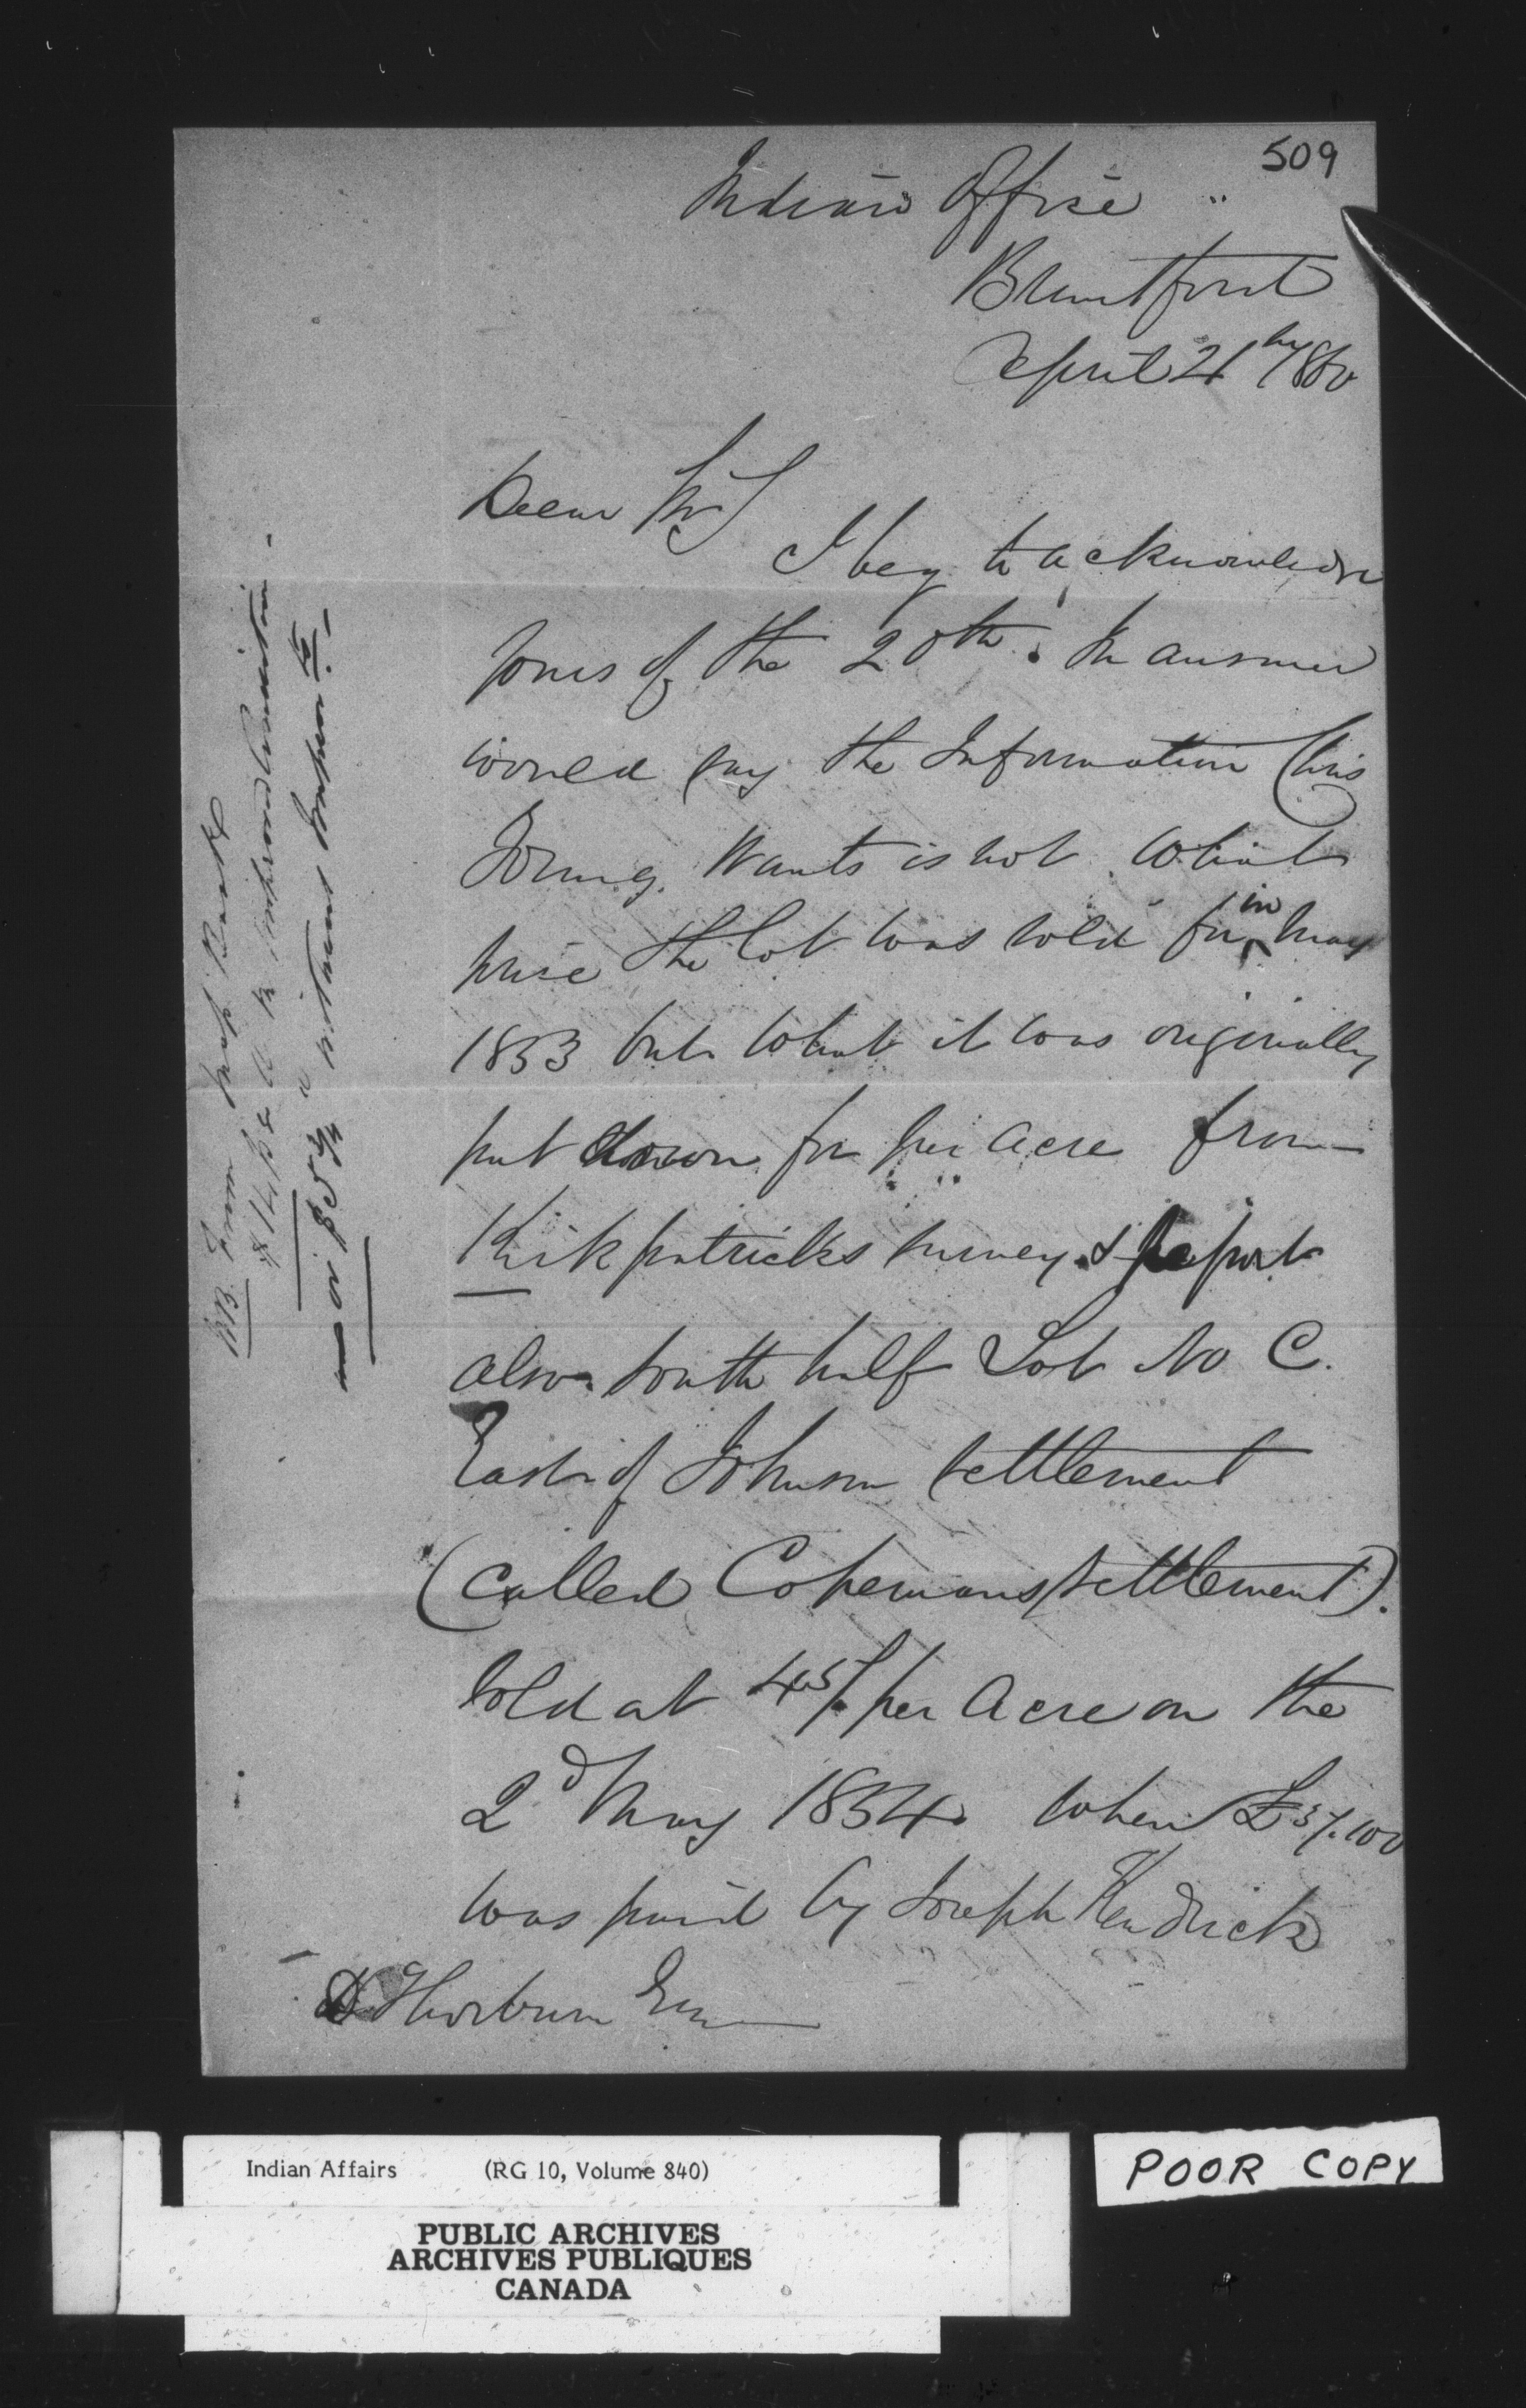 509
Indian Office
Brantford
April 21 1860
Dear Sir
I beg to acknowledge
yours of the 20th. In answer
would say the Information Chs
Young wants is not what
price the lot was sold for in May
1853 but what it was originally
put down for per acre from
Kirkpatricks survey & Report
also south half Lot No C.
East of Johnson settlement
(called Copemans settlement).
sold at 45/. per Acre on the
2d May 1854 when
was paid by Joseph Kendrick
D Thorburn Esq
NB. From
or $5 3/4
Indian Affairs (RG 10, Volume 840)
PUBLIC ARCHIVES
ARCHIVES PUBLIQUES
CANADA
POOR COPY